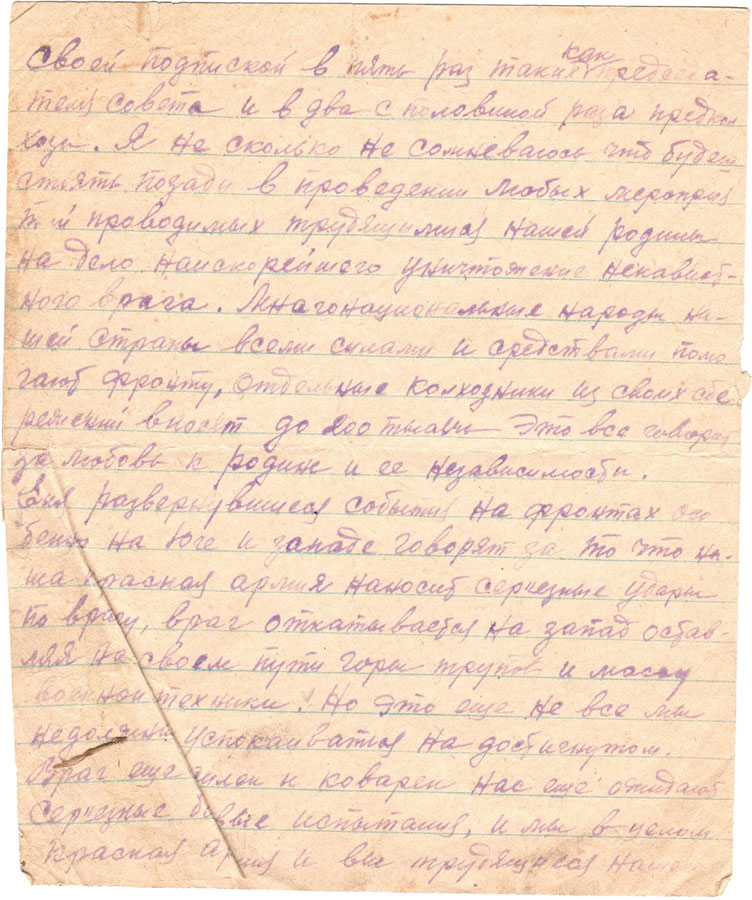 Своей подпиской в пять раз таких как председа-
теля совета и в два с половиной раза предкол
хоза. Я не сколько не сомневаюсь что будеш
стоять позади в проведении любых мероприя
тий проводимых трудящимися нашей родины
на дело наискорейшего уничтожение ненавист-
ного врага. Многонациональные народы на-
шей страны всеми силами и средствами помо
гают фронту, отдельные колхозники из своих сбе
режений вносят до 200 тысяч Это все говорит
за любовь к родине и ее независимости.
развернувшиеся события на фронтах осо
бенно на Юге и западе говорят за то что на-
ша красная армия наносит серьезные удары
по врагу, враг откатывается на запад остав-
ляя на своем пути горы трупов и массу
военной техники. Но это еще не все мы
недолжны успокаиватыся на достигнутом.
Враг еще силен и коварен нас еще ожидают
Серьезные боевые испытания, и мы в целом
Красная Армия и вы трудящиеся нашей